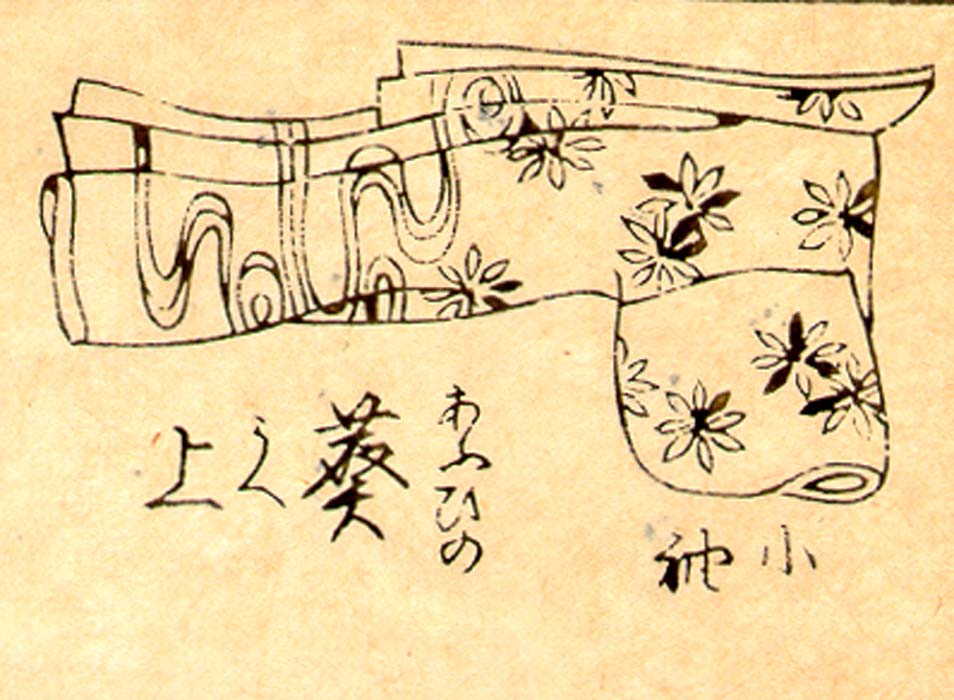 小袖
あふひの
葵
うへ
上